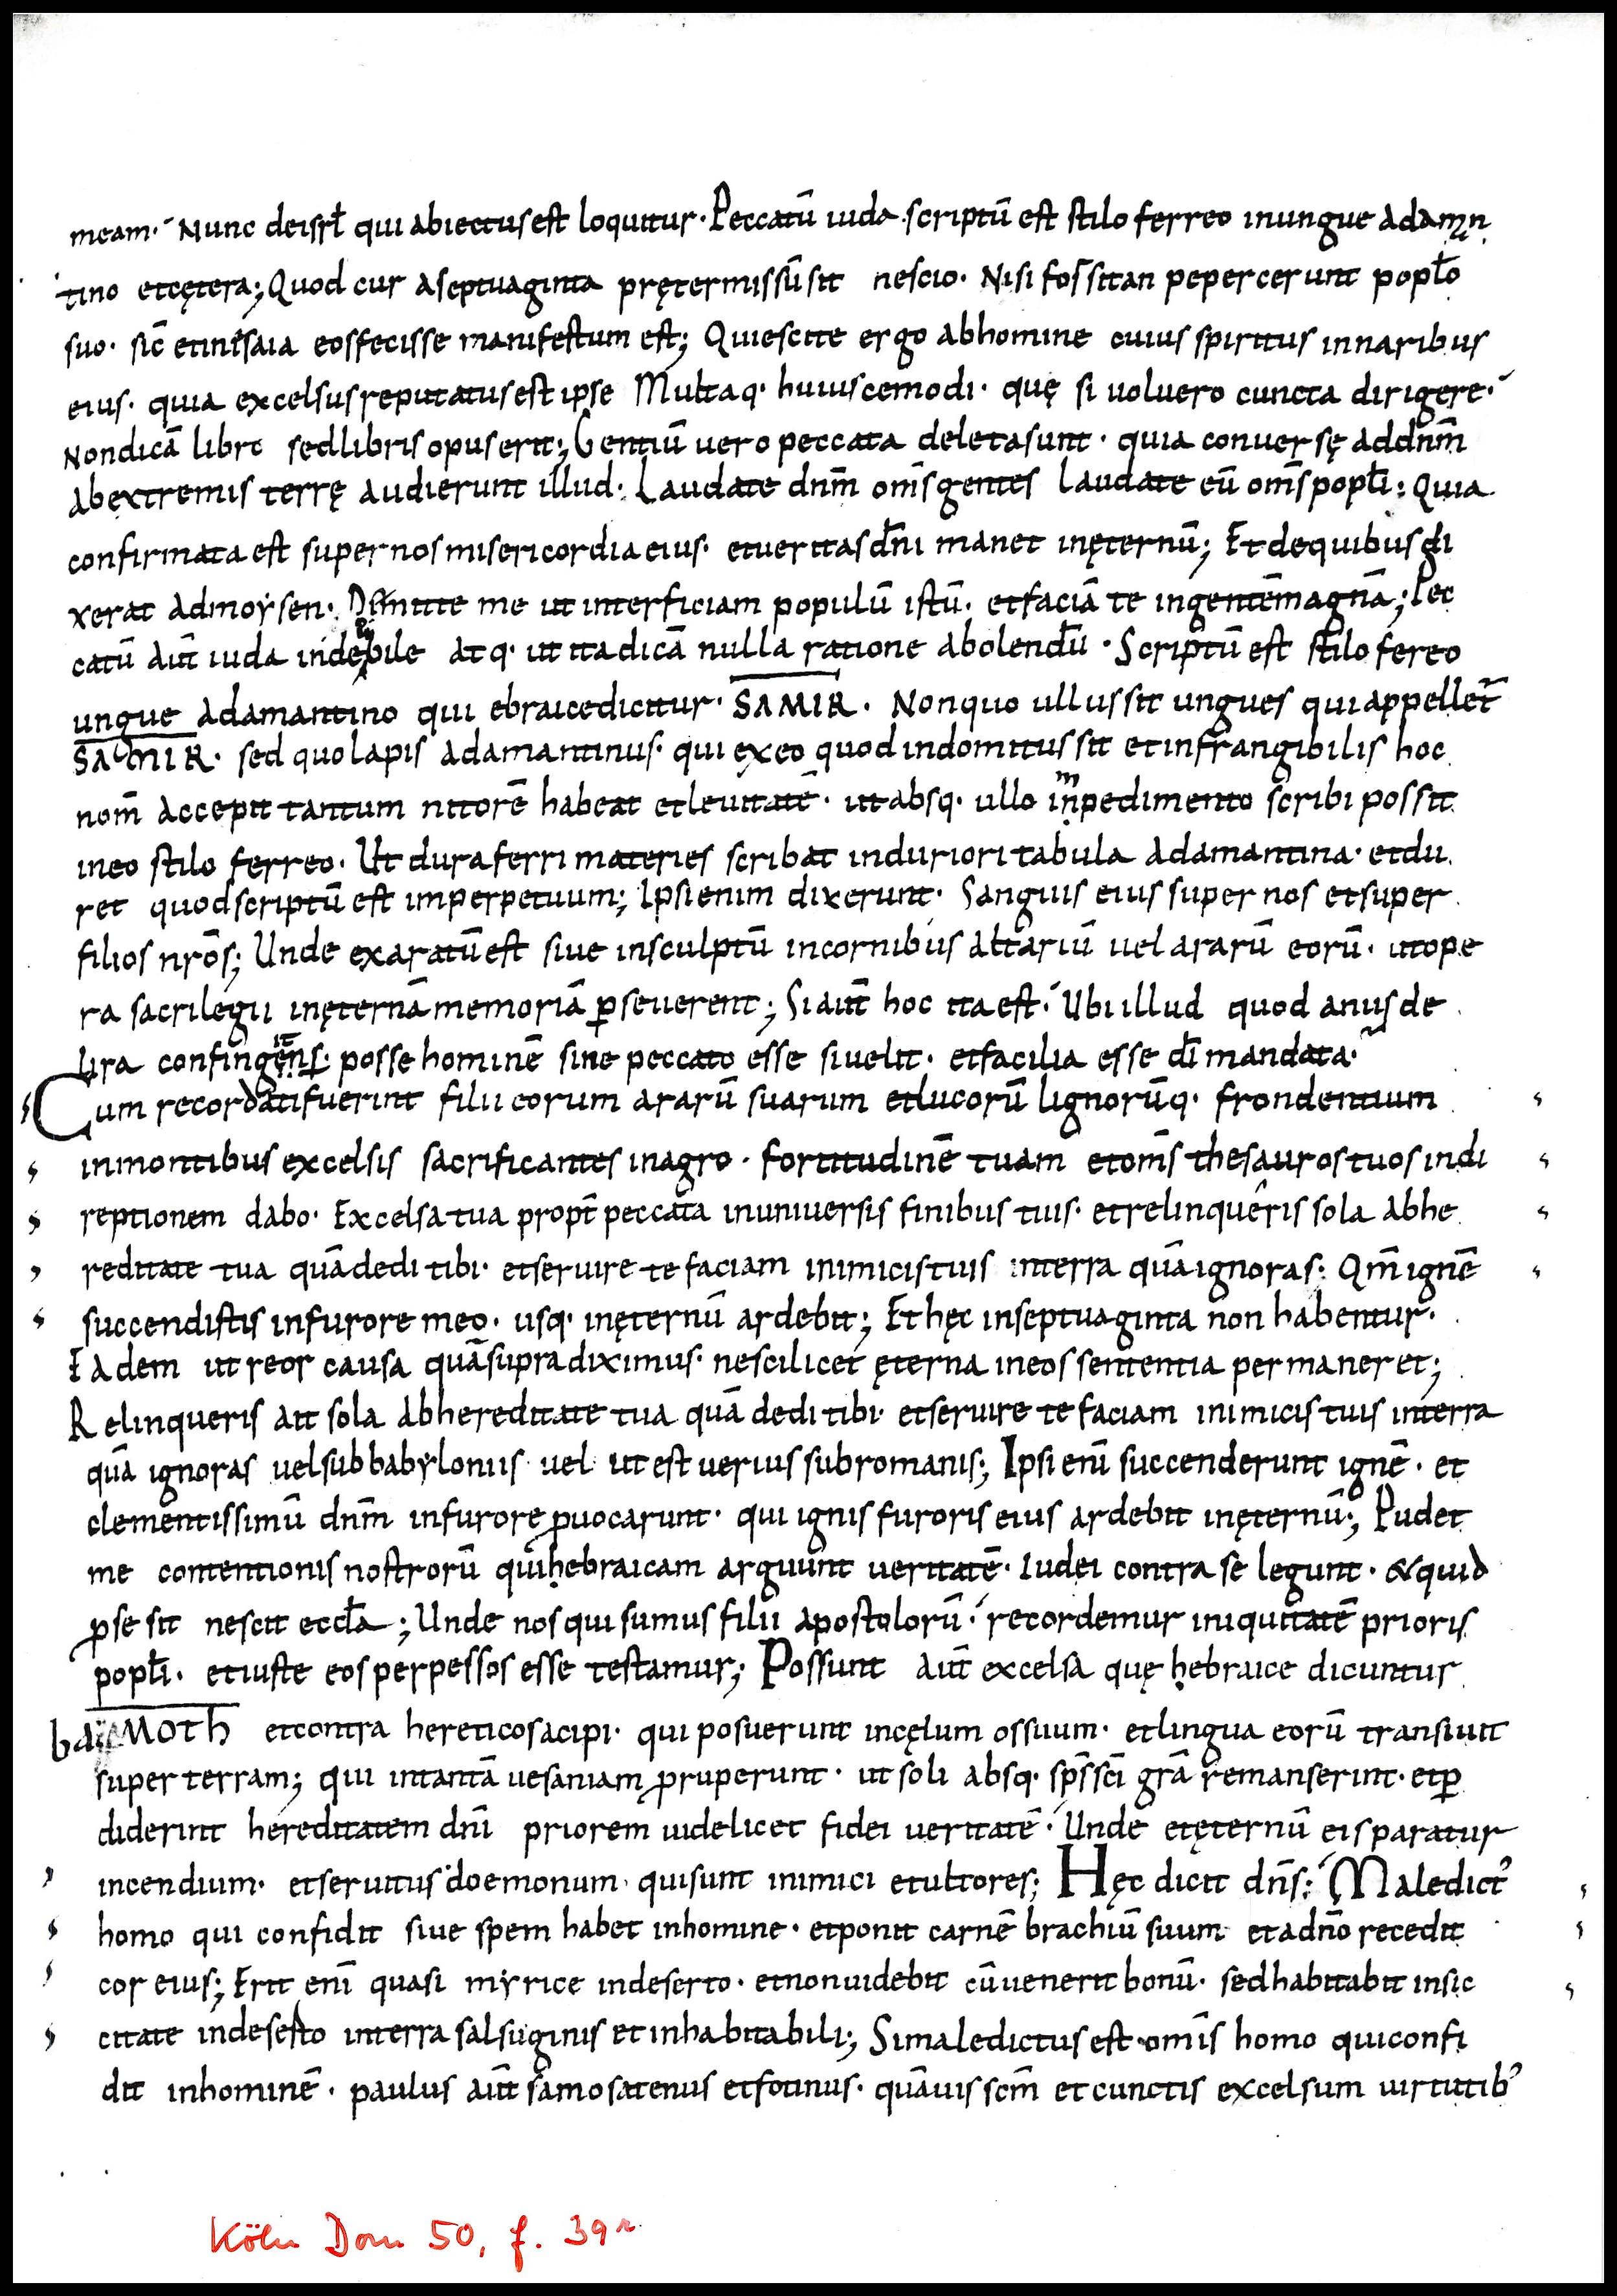 meam· Nunc deisrł qui abiectus est loquitur· Peccatū iuda scriptū est stilo ferreo inungue adaman
tino etcętera; Quod cur aseptuaginta prętermissū sit nescio· Nisi forsitan pepercerunt popło
suo· sic̄ etinisaia eosfecisse manifestum est; Quiescite ergo abhomine cuius spiritus innaribus
eius· quia excelsus reputatus est ipse Multaq· huiuscemodi· quę si uoluero cuncta dirigere·
Nondicā libro sedlibris opus erit; Gentiū uero peccata deletasunt· quia conuersę addnm̄
abextremis terrę audierunt illud· Laudate dnm̄ om̄s gentes laudate eū om̄s popłi: Quia
confirmata est super nos misericordia eius· etueritas dn̄i manet inęternū; Et dequibus di
xerat admoysen· Dimitte me ut interficiam populū istū· etfaciā te ingentēmagnā; Pec
catū aut̄ iuda indelebile atq· ut itadicā nulla ratione abolendū· Scriptū est stilo fereo
ungue adamantino qui ebraicedicitur· SAMIR· Nonquo ullus sit ungues qui appellet̄
SAMIR· sed quo lapis adamantinus· qui exeo quod indomitus sit et infrangibilis hoc
nom̄ accepit tantum nitorē habeat etleuitatē· ut absq· ullo inmpedimento scribi possit
ineo stilo ferreo· Ut dura ferri materies scribat induriori tabula adamantina· etdu
ret quod scriptū est imperpetuum; Ipsi enim dixerunt· Sanguis eius super nos etsuper
filios nrōs; Unde exaratū est siue insculptū incornibus altāriū uel ararū eorū· utope
ra sacrilegii inęternā memoriā ꝑseuerent; Si aut̄ hoc ita est· Ubi illud quod anus de
lira confingens· posse hominē sine peccato esse siuelit· etfacilia esse dī mandata·
Cum recordati fuerint filii eorum ararū suarum etlucorū lignorūq· frondentium
inmontibus excelsis sacrificantes inagro· fortitudinē tuam etom̄s thesauros tuos indi
reptionem dabo· Excelsa tua propt̄ peccata inuniuersis finibus tuis· etrelinqueris sola abhe
reditate tua quādedi tibi· etseruire te faciam inimicis tuis interra quā ignoras: Qm̄ ignē
succendistis infurore meo· usq· inęternū ardebit; Et hęc inseptuaginta non habentur·
Eadem ut reor causa quā supra diximus· nescilicet ęterna ineos sententia permaneret;
Relinqueris ait sola abhereditate tua quā dedi tibi· etseruire te faciam inimicis tuis interra
quā ignoras uel sub babyloniis uel ut est uerius sub romanis; Ipsi enī succenderunt ignē· et
clementissimū dnm̄ infurorē ꝓuocarunt· qui ignis furoris eius ardebit inęternū; Pudet
me contentionis nostrorū qui hebraicam arguunt ueritatē· Iudei contra se legunt· & quid
ꝓse sit nescit eccła; Unde nos qui sumus filii apostolorū· recordemur iniquitatē prioris
popłi· etiuste eos perpessos esse testamur; Possunt aut̄ excelsa quę hebraice dicuntur
bamoth etcontra hereticos acipi· qui posuerunt incęlum os suum· etlingua eorū transiuit
super terram; qui intantā uesaniam ꝓruperunt· ut soli absq· sp̄s sc̄i grā remanserint· etꝑ
diderint hereditatem dnī priorem uidelicet fidei ueritatē· Unde etęternū eis paratur
incendium· etseruitus doemonum· quisunt inimici etultores; Hęc dicit dn̄s: Maledict'
homo qui confidit siue spem habet inhomine· etponit carnē brachiū suum· et adn̄o recedit
cor eius; Erit enī quasi myrice indeserto· etnonuidebit cūuenerit bonū· sedhabitabit insic
citate indeserto interra salsuginis et inhabitabili; Simaledictus est omīs homo quiconfi
dit inhominē· paulus aut̄ samosatenus etfotinus· quāuis scm̄ et cunctis excelsum uirtutib'
Köln Dom 50, f. 39r